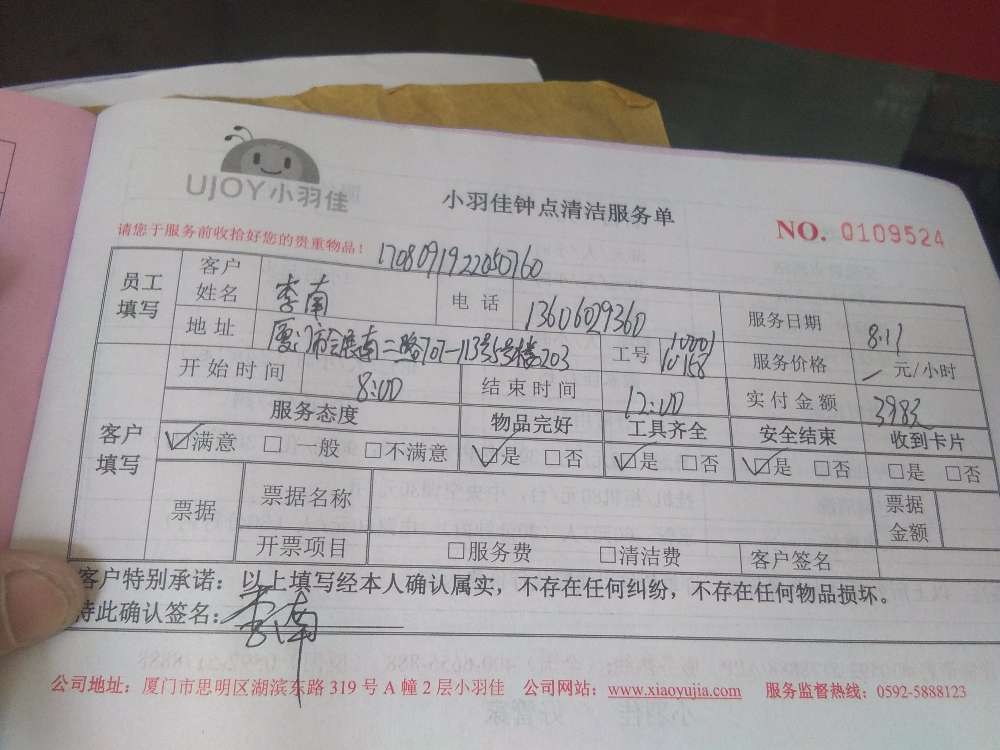 UJOY小羽佳
小羽佳钟点清洁服务单
NO. 0109524
请您于服务前收拾好您的贵重物品!
1708091922050760
员工填写 客户姓名 李南 电话 13606029360 服务日期 8.11
地址 厦门市会展南二路707-113号5号楼203 工号 10001 10158 服务价格 / 元/小时
开始时间 8:00 结束时间 12:00 实付金额 398元
客户填写 服务态度 物品完好 工具齐全 安全结束 收到卡片
☑满意 □一般 □不满意 ☑是 □否 ☑是 □否 ☑是 □否 □是 □否
票据 票据名称 票据金额
开票项目 □服务费 □清洁费 客户签名
客户特别承诺:以上填写经本人确认属实,不存在任何纠纷,不存在任何物品损坏。
特此确认签名:李南
公司地址:厦门市思明区湖滨东路 319 号 A 幢 2 层小羽佳 公司网站:www.xiaoyujia.com 服务监督热线:0592-5888123